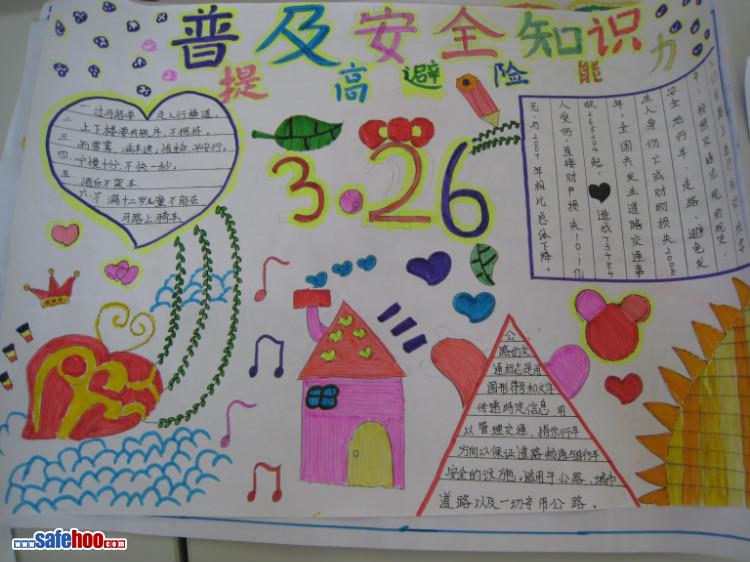 普及安全知识
提高避险能力
3·26
一.过马路要 走人行横道。
二 上下楼要有秩序,不拥挤。
三
四.宁慢十分,不快一秒。
五 酒后不驾车
六.不满十二岁儿童不能在
马路上骑车
安全地行车、走路,避免发
生人身伤亡或财物损失2008
年,全国共发生道路交通事
故265204起,造成73484
人受伤,直接财产损失10.1亿
元,与2007年相比总体下降。
公
路的交
通标志是用
图形符号和文字
传递特定信息 用
以管理交通、指示行车
方向以保证道路畅通与行车
安全的设施。适用于公路、城市
道路以及一切专用公路。
www.safehoo.com